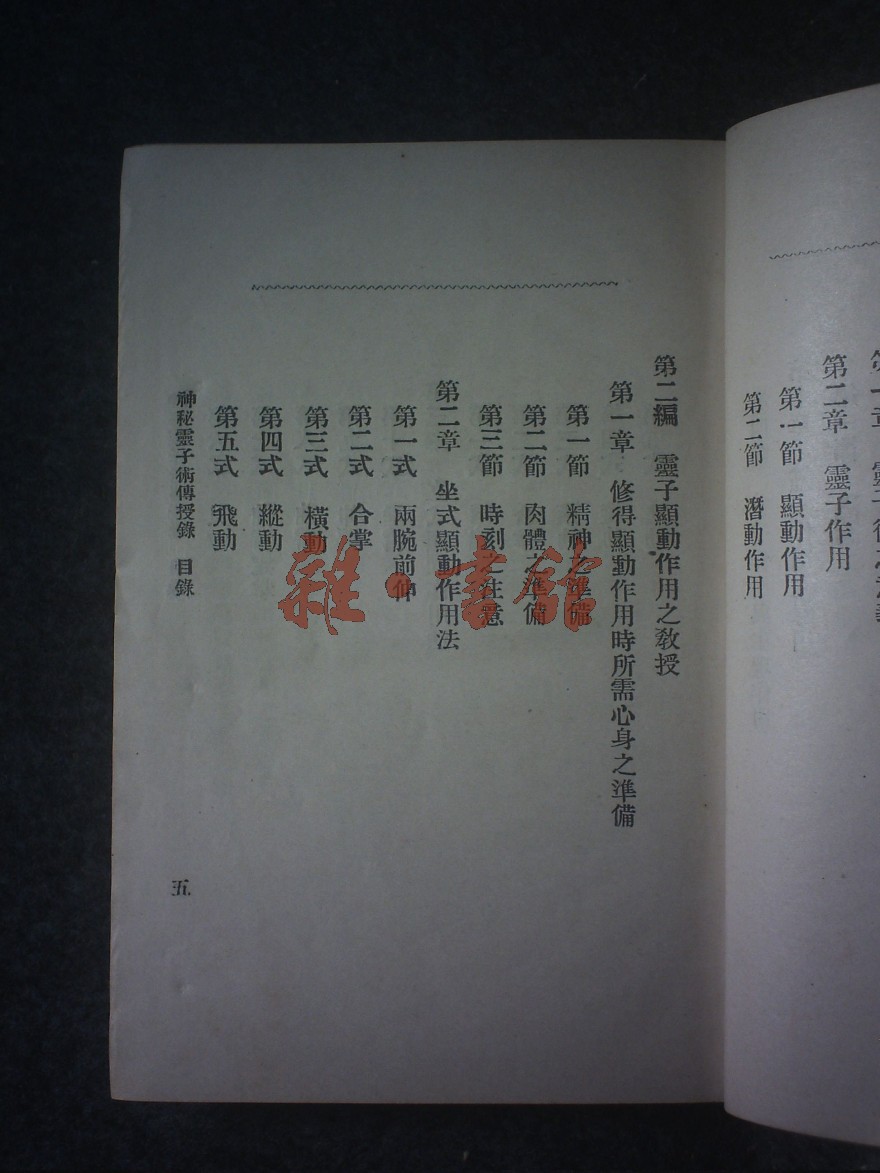 第二章 靈子作用
第一節 顯動作用
第二節 潛動作用
第二編 靈子顯動作用之敎授
第一章 修得顯動作用時所需心身之準備
第一節 精神之準備
第二節 肉體之準備
第三節 時刻之注意
第二章 坐式顯動作用法
第一式 兩腕前伸
第二式 合掌
第三式 橫動
第四式 縱動
第五式 飛動
神秘靈子術傳授錄 目錄
五
雜·書館